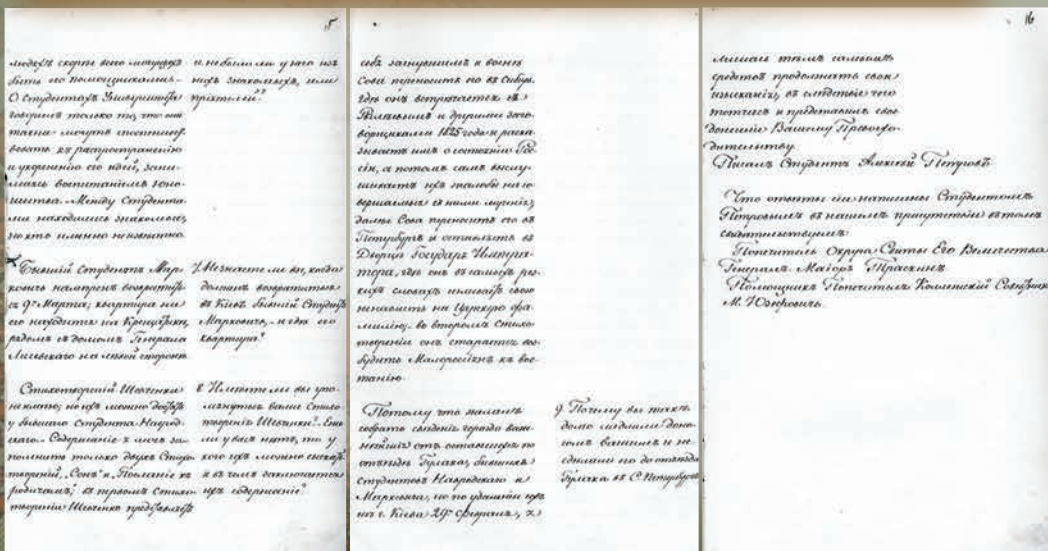 5
людехъ скорѣе всего могущихъ
быть его помощниками.-
О студентахъ Университета
говорилъ только то, что они
также могутъ способство-
вовать къ распространенію
и укорененію его идей, зани-
маясь воспитаніемъ юно-
шества. Между Студента-
ми находились знакомые,
но кто именно неизвѣстно.
и небыли ли у него изъ
нихъ знакомыхъ, или
пріятелей?
Бывшій Студентъ Мар-
ковичъ намѣренъ возвратиться
съ 9го Марта; квартира на
его находится на Крещатикѣ,
рядомъ съ домомъ Генерала
на лѣвой сторонѣ
7. Незнаете ли вы, когда
долженъ возвратиться
въ Кіевъ бывшій Студентъ
Марковичъ, и гдѣ его
квартира?
Стихотвореній Шевченки
не имѣю; но ихъ можно достать
у бывшаго Студента Навроц-
каго. Содержаніе я могъ за-
помнить только двухъ Стихо-
твореній, „Сонъ“ и „Посланіе къ
родичамъ; въ первомъ Стихо-
твореніи Шевченко представляетъ
8. Имѣете ли вы упо-
мянутыя вами Стихо-
творенія Шевченки? Если
ли у васъ нѣтъ, то у
кого ихъ можно сыскать
и въ чемъ заключается
ихъ содержаніе?
себя заснувшимъ и во снѣ
Сова переноситъ его въ Сибирь,
гдѣ онъ встрѣчается съ
и другими заго-
ворщиками 1825 года и разска-
зываетъ имъ о состояніи Рос-
сіи, а потомъ самъ выслу-
шиваетъ ихъ жалобы на со-
вершаемыя съ ними мученія;
далѣе Сова переноситъ его въ
Петербургъ и оставляетъ въ
Дворцѣ Государя Императ-
тора, гдѣ онъ въ самыхъ рѣз-
кихъ словахъ изливаетъ свою
ненависть на Царскую фа-
милію;- во второмъ Стихо-
твореніи онъ старается воз-
будить Малороссіянъ къ воз-
станію.
Потому что желалъ
собрать свѣденія гораздо важ-
нѣйшія отъ оставшихся по
отъѣздѣ Гулака, бывшихъ
студентовъ Навроцкаго и
Марковича, но по удаленіи ихъ
изъ г. Кіева 29го февраля, я
9. Почему вы такъ
долго медлили доно-
сомъ вашимъ и не
сдѣлали по до отъѣзда
Гулака въ С. Петербургъ
16
лишась тѣмъ самымъ
средствъ продолжать свои
изысканія, въ слѣдствіе чего
тотчасъ и представилъ свое
донесеніе Вашему Превосхо-
дительству.
Писалъ Студентъ Алексѣй Петровъ
Что отвѣты сіи написаны Студентомъ
Петровымъ въ нашемъ присутствіи въ томъ
свидѣтельствуемъ:
Попечитель Округа Свиты Его Величества
Генералъ-Маіоръ Траскинъ
Помощникъ Попечителя Коллежскій Совѣтникъ
М. Юзефовичъ.